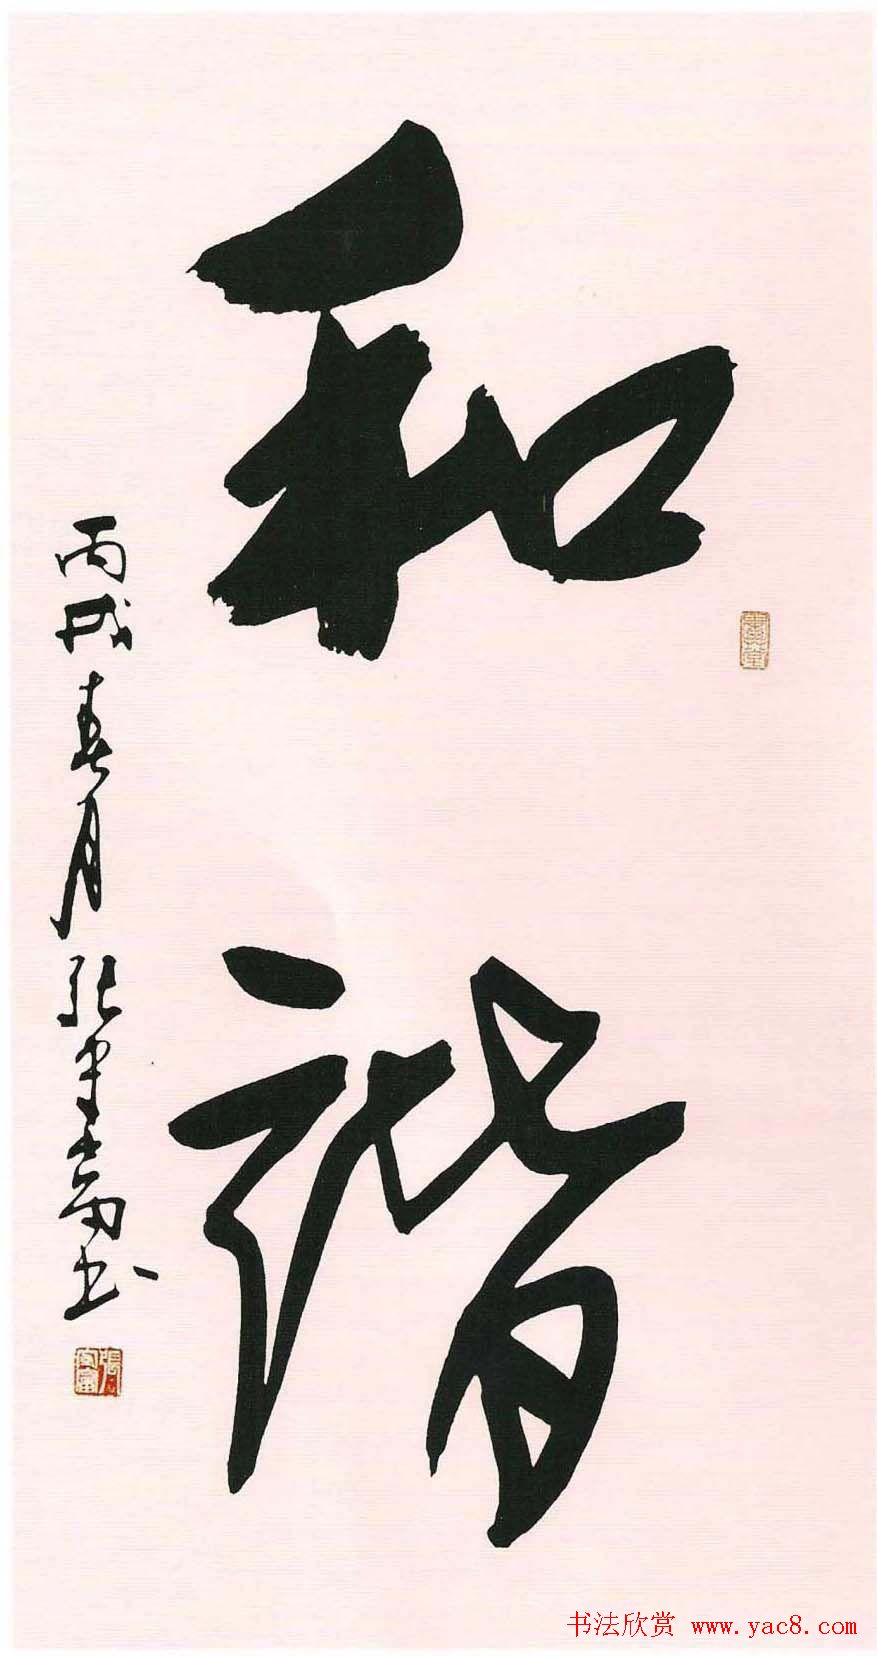 和諧
丙戌春月張守富書
书法欣赏 www.yac8.com